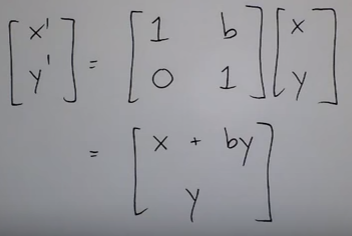 [x' y'] = [1 b 0 1] [x y]
= [x + by y]